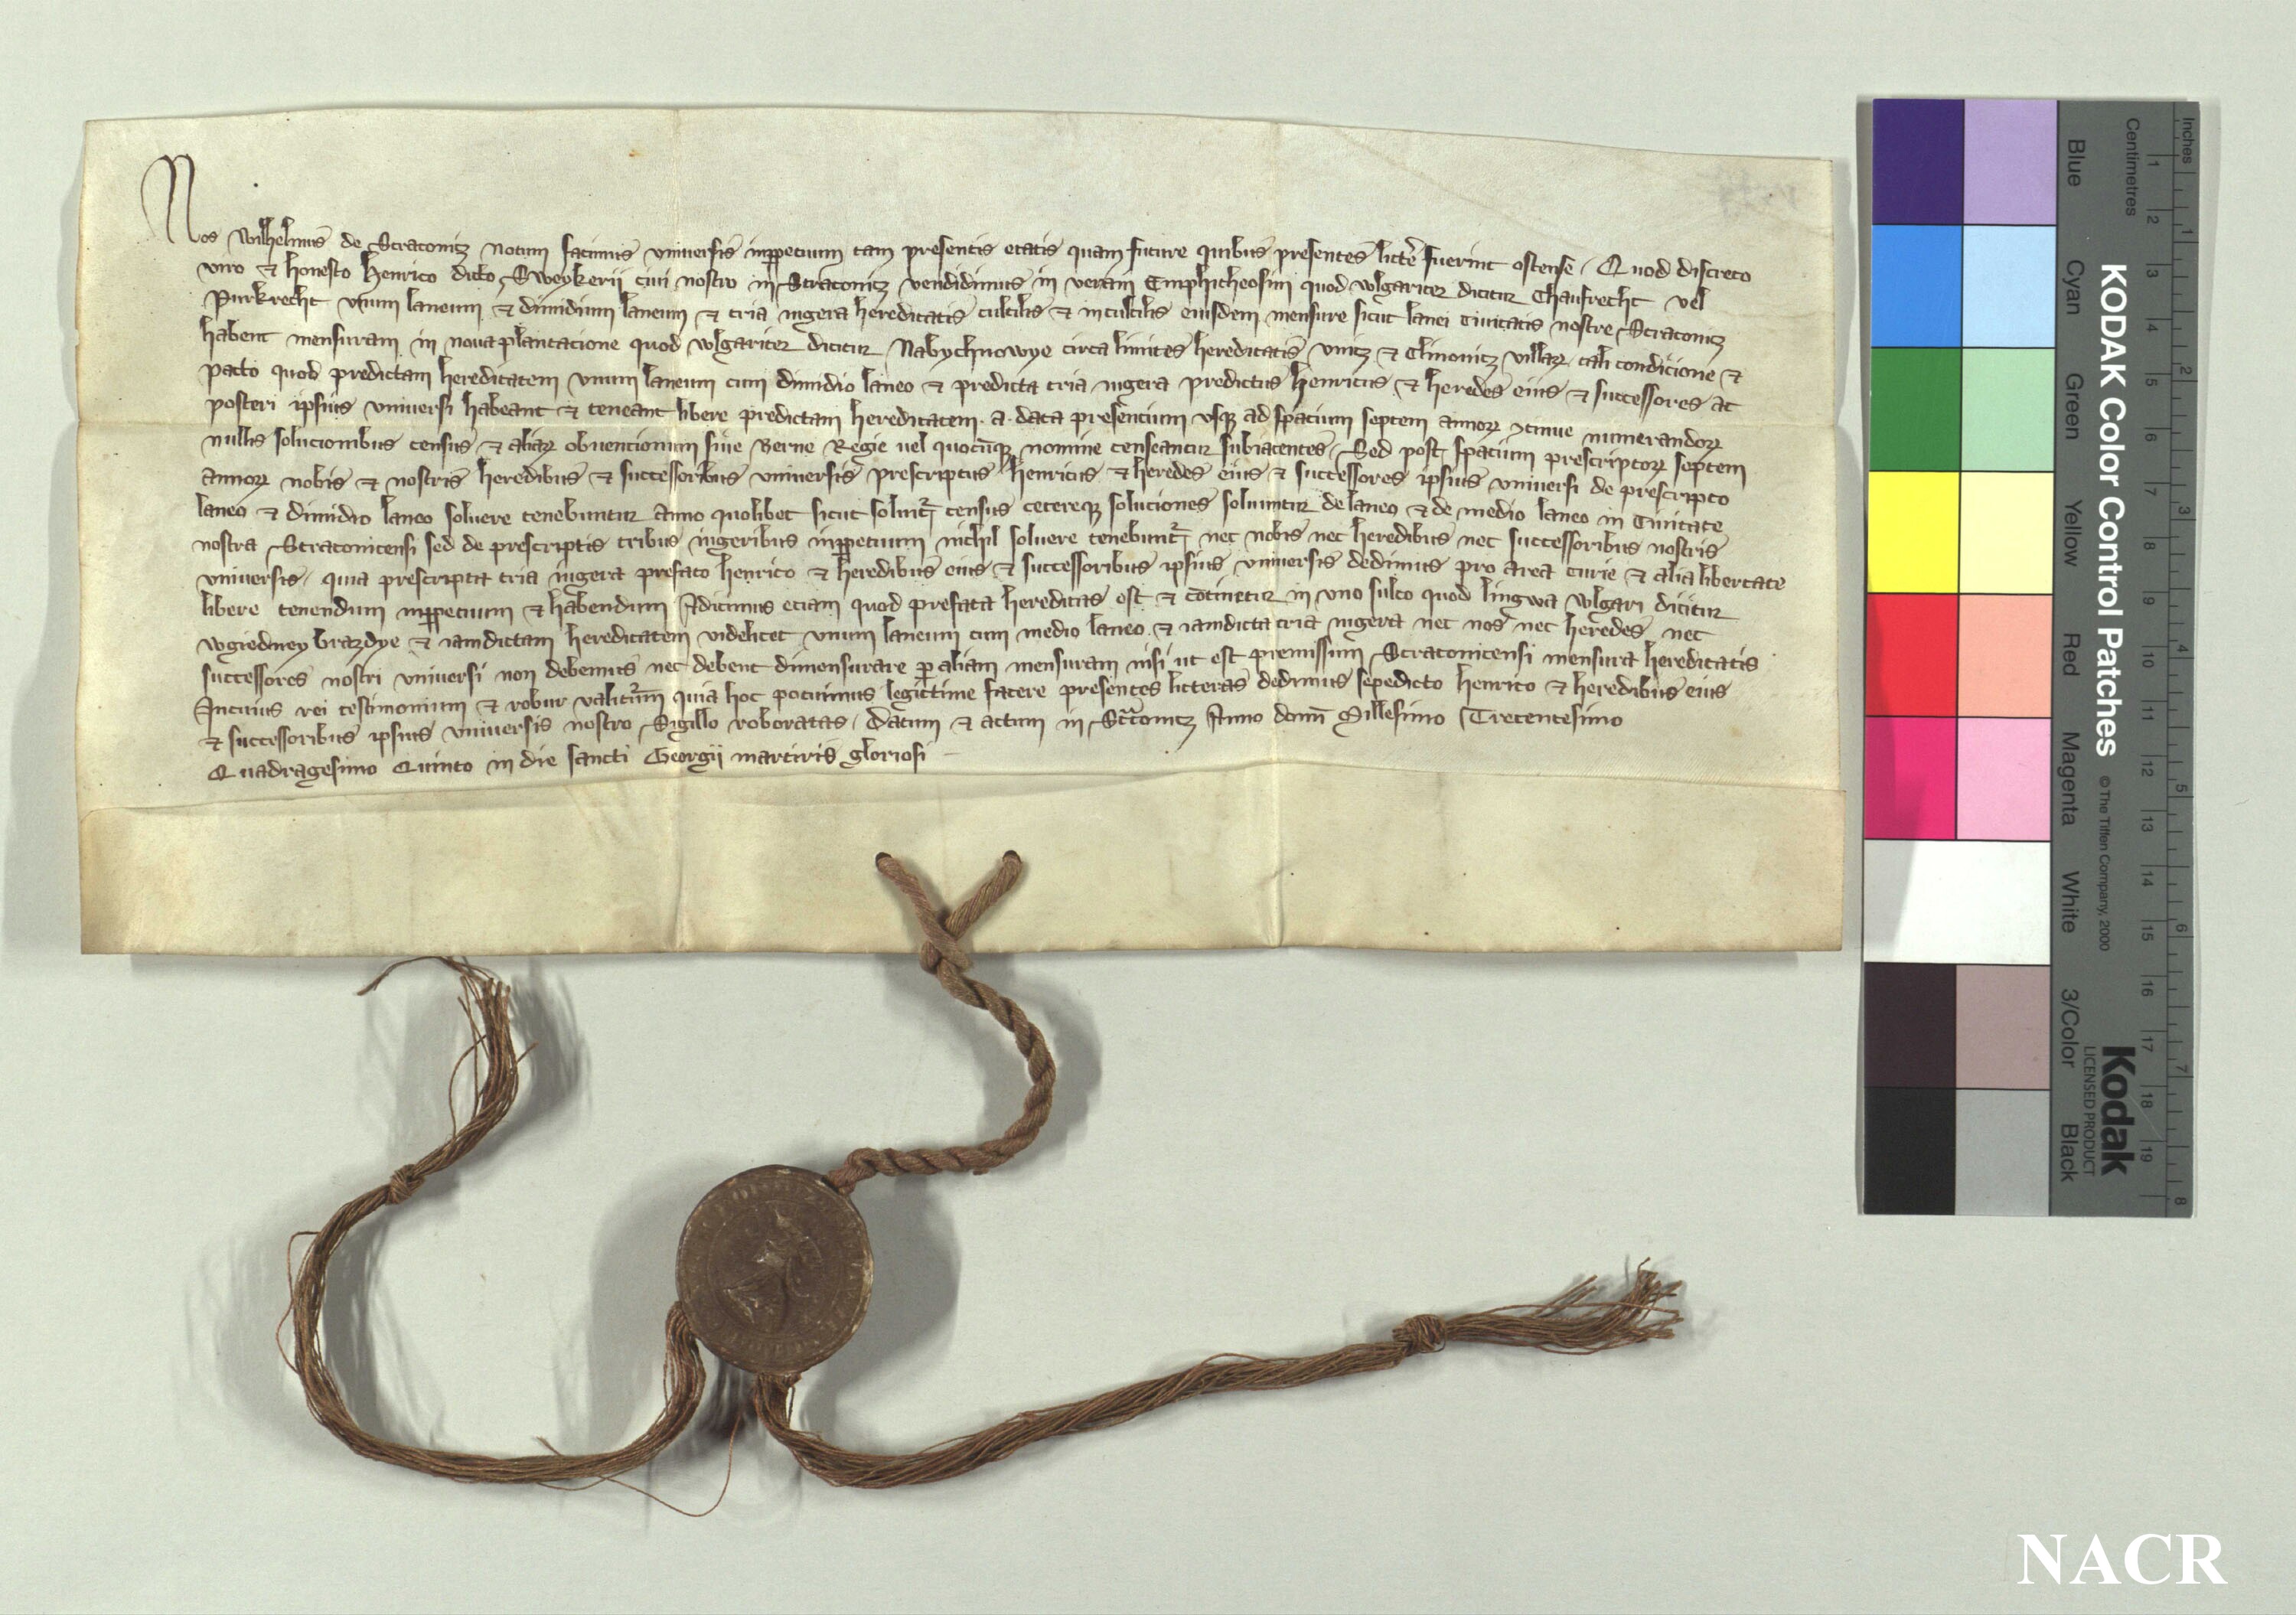 Nos Wilhelmus de Straconicz notum facimus universis inpꝑetuum tam presentis etatis quam future quibus presentes litte᷑ fuerint ostense / Quod discreto
viro & honesto Henrico dicto Sweykerii civi nostro in Straconicz vendidimus in veram Emphitheosim quod wlgariter dicitur Chaufrecht vel
Purkrecht vnum laneum & dimidium laneum & tria iugera hereditatis cultilis & incultilis eiusdem mensure sicut lanei Ciuitatis nostre Straconicz
habent mensuram in noua plantacione quod wlgariter dicitur Nabychnowye circa limites hereditatis vnicz & Clinonicz villaꝝ tali condicione &
pacto quod predictam hereditatem vnum laneum cum dimidio laneo & predicta tria iugera predictus Henricus & heredes eius & successores ac
posteri ipsius vniuersi habeant & teneant libere predictam hereditatem . a . data presencium vsqꝫ ad spacium septem annoꝝ ꝯtinue numerandoꝝ
nullis solucionibus census & aliaꝝ obuencionum siue Berne Regie uel quocūqꝫ nomine censeantur subiacentes / Sed post spacium prescriptoꝝ septem
annoꝝ nobis & nostris heredibus & successoribus vniuersis prescriptus Henricus & heredes eius & successores ipsius vniuersi de prescripto
laneo & dimidio laneo soluere tenebuntur anno quolibet sicut soluit᷑ census cetereqꝫ soluciones soluuntur de laneo & de medio laneo in Ciuitate
nostra Straconicensi sed de prescriptis tribus iugeribus inpꝑetuum nichil soluere tenebunt᷑ nec nobis nec heredibus nec successoribus nostris
vniuersis / quia prescripta tria iugera prefato henrico & heredibus eius & successoribus ipsius vniuersis dedimus pro area curie & alia libertate
libere tenendum inpꝑetuum & habendum Adicimus eciam quod prefata hereditas est & cōtinetur in vno sulco quod lingwa wlgari dicitur
wgiedney brazdye & iamdictam hereditatem videlicet vnum laneum cum medio laneo & iamdicta tria iugera nec nos nec heredes nec
successores nostri vniuersi non debemus nec debent dimensurare ꝑ aliam mensuram nisi ut est premissum Straconicensi mensura hereditatis
Incuius rei testimonium & robur valitur̄m quia hoc potuimus legittime facere presentes litteras dedimus sepedicto henrico & heredibus eius
& successoribus ipsius vniuersis nostro Sigillo roboratas / Datum & actum in Strᷓconicz Anno domī Millesimo Trecentesimo
Quadragesimo Quinto in die sancti Georgii martiris gloriosi
KODAK Color Control Patches
© The Tiffen Company, 2000
Kodak
LICENSED PRODUCT
Inches
1 2 3 4 5 6 7 8
Centimetres
1 2 3 4 5 6 7 8 9 10 11 12 13 14 15 16 17 18 19
Blue
Cyan
Green
Yellow
Red
Magenta
White
3/Color
Black
NACR